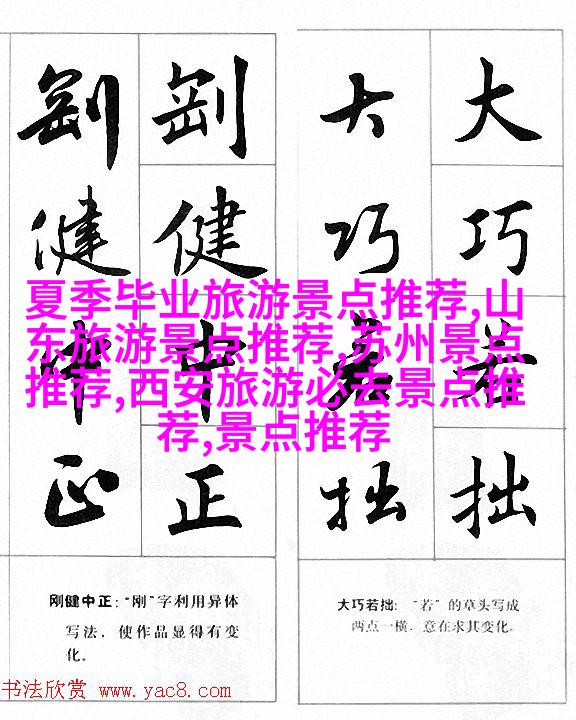 剛 剛 大 大
健 健 巧 巧
夏季毕业旅游景点推荐,山
东旅游景点推荐,苏州景点
推荐,西安旅游必去景点推
荐,景点推荐
中 中 若 若
正 正 拙 拙
刚健中正:“刚”字利用异体
写法，使作品显得有变
化。
大巧若拙:“若”的草头写成
两点一横，意在求其变化。
书法欣赏 www.yac8.com